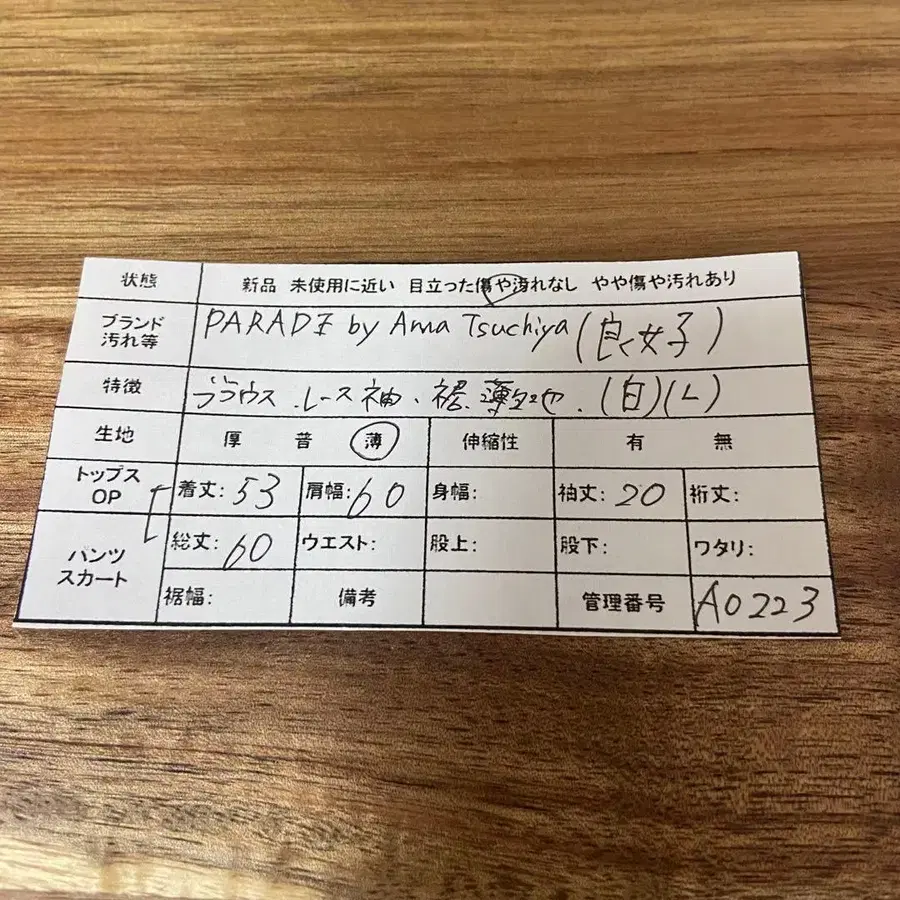 状態 新品 未使用に近い 目立った傷や汚れなし やや傷や汚れあり
ブランド PARADE by Anna Tsuchiya (良く女子)
汚れ等
特徴 ブラウス.レース袖、裾.薄生地.(白)(L)
生地 厚 普 薄 伸縮性 有 無
トップス OP 着丈:53 肩幅:60 身幅: 袖丈:20 裄丈:
パンツ スカート 総丈:60 ウエスト: 股上: 股下: ワタリ:
裾幅: 備考 管理番号 A0223